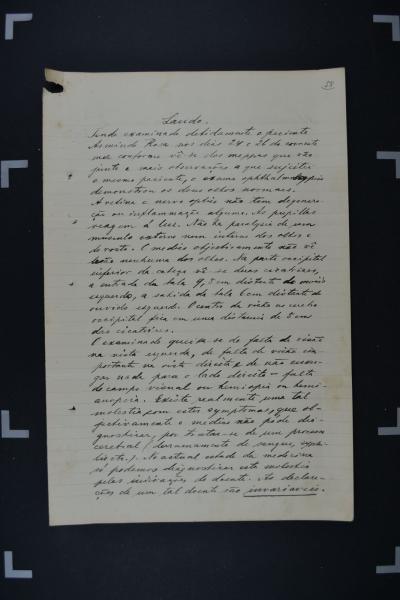 59
Laudo.
Tendo examinado detidamente o paciente
Rosa nos dias 24 e 26 do corrente
mez conforme vê-se dos mappas que vão
junto e mais observações a que sujeitei
o mesmo paciente, o exame ophthalmoscopico
demonstrou os dous olhos normaes.
A retina e nervo optico não tem degenera-
ção ou inflammação alguma. As pupillas
reagem á luz. Não ha paralysia de um
musculo externo nem interno dos olhos e
do rosto. O medico objectivamente não vê
lesão nenhuma dos olhos. Na parte occipital
superior da cabeça vê-se duas cicatrizes,
a entrada da bala 9,5 cm distante do ouvido
esquerdo, a sahida da bala 6 cm distante do
ouvido esquerdo. O centro da visão no cerebro
occipital fica em uma distancia de 5 cm
das cicatrizes.
O examinado queixa-se de falta de visão
na vista esquerda, de falta de visão im-
portante na vista direita e de não enxer-
gar nada para o lado direito - falta
de campo visual ou hemiopia ou hemi-
anopsia. Existe realmente uma tal
molestia com estes symptomas, que ob-
jectivamente o medico não pode dia-
gnosticar, por tratar-se de um processo
cerebral (derramamento de sangue,
etc.). No actual estado da medicina
só podemos diagnosticar esta molestia
pelas indicações do doente. As declara-
ções de um tal doente são invariaveis.